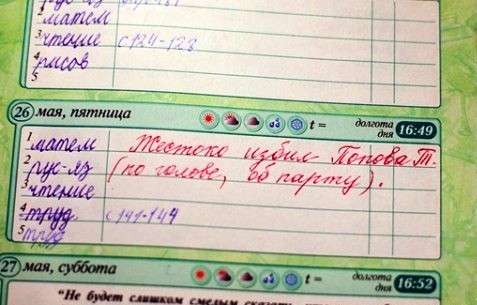 матем
3 чтение с 124-128
4 рисов
5
26 мая, пятница t = долгота дня 16:49
1 матем Жестоко избил Попова Т.
2 рус-яз (по голове, об парту).
3 чтение
4 труд с 141-144
5 труд
27 мая, суббота t = долгота дня 16:52
"Не будет слишком смелым сказать